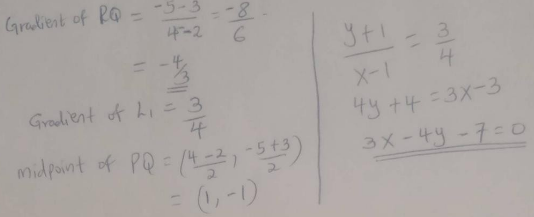 Gradient of PQ = -5-3/4-2 = -8/6
= -4/3
Gradient of L₁ = 3/4
midpoint of PQ = (4-2/2, -5+3/2)
= (1, -1)
y+1/x-1 = 3/4
4y+4 = 3x-3
3x-4y-7=0